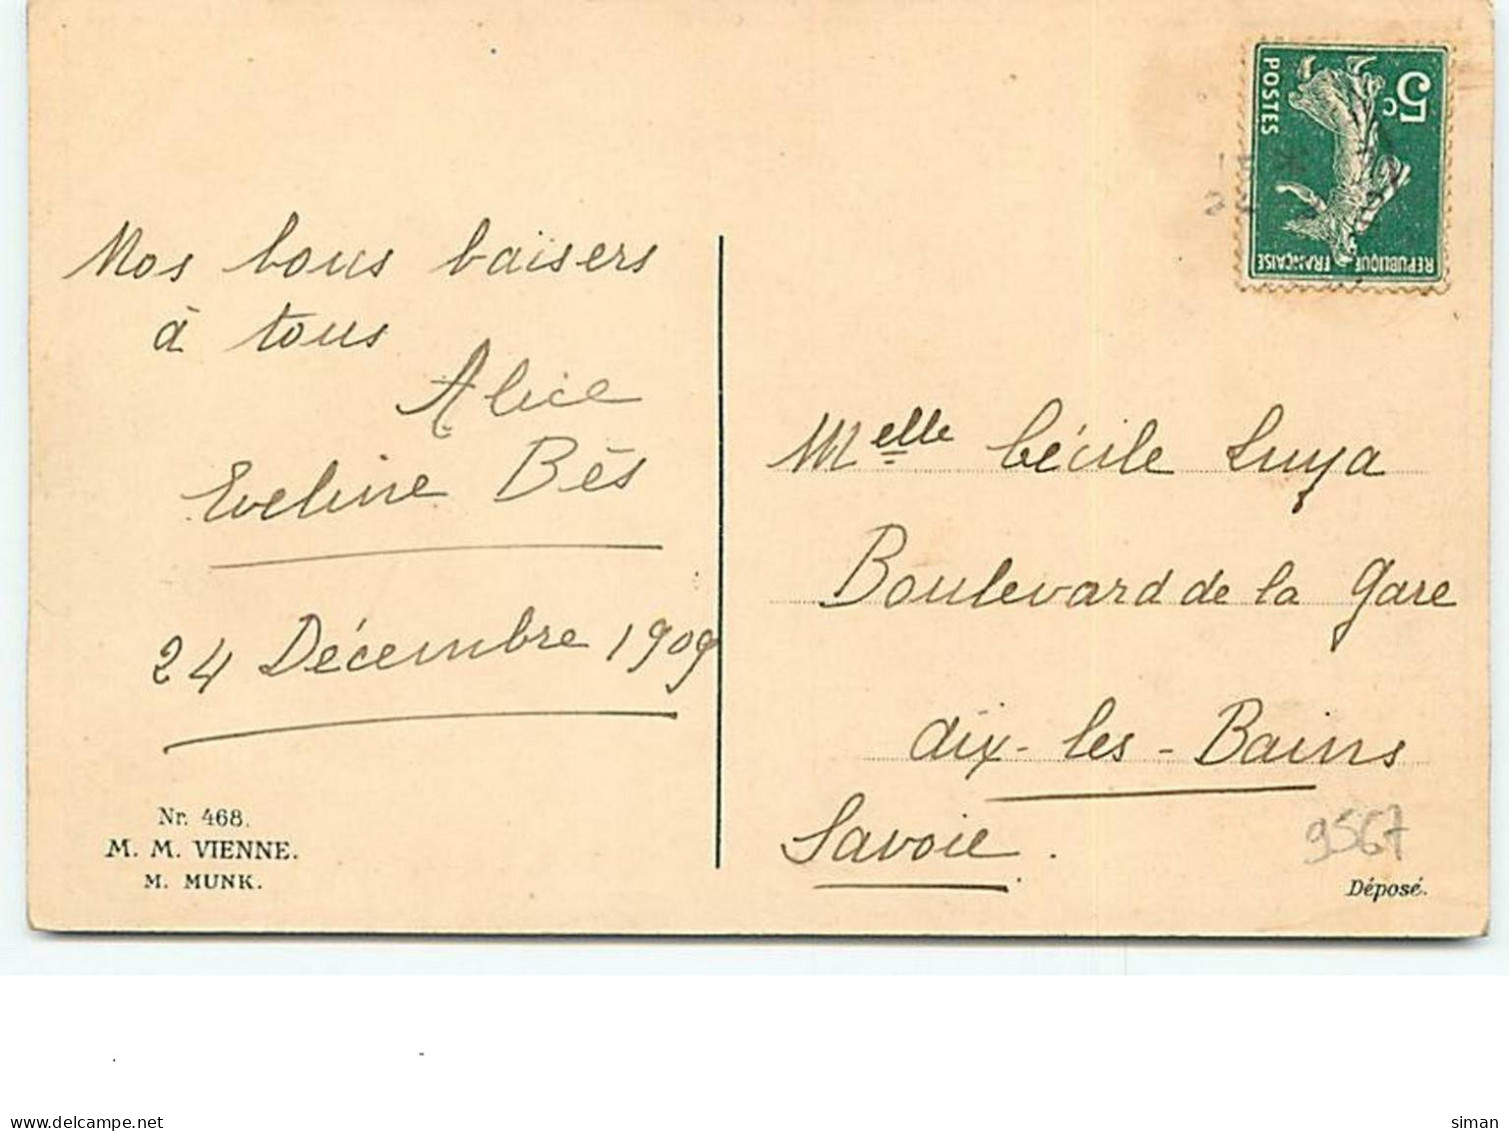 Mos bous baisers
à tous
Alice
Eveline Bès
24 Décembre 1909
Nr. 468.
M. M. VIENNE.
M. MUNK.
5c
POSTES
REPUBLIQUE FRANÇAISE
Melle Cécile Luya
Boulevard de la Gare
Aix-les-Bains
Savoie.
9567
Déposé.
delcampe.net
siman